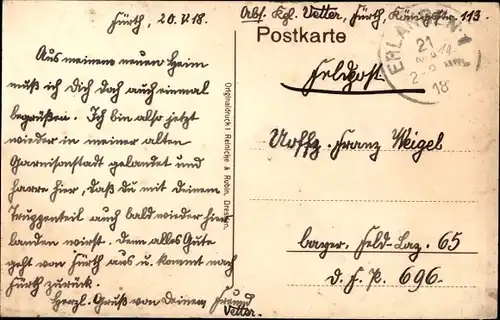 Fürth, 20.V.18.
Aus meinem neuen Heim
muß ich Dich doch auch einmal
begrüßen. Ich bin also jetzt
wieder in meiner alten
Garnisonstadt gelandet und
harre hier, daß Du mit Deinem
Truppenteil auch bald wieder hier
landen wirst. Denn alles Gute
geht von Fürth aus u. kommt nach
Fürth zurück.
Herzl. Gruß von Deinem Freund
Vetter.
Originaldruck: Reinicke & Rubin, Dresden.
Abs. Kgl. Vetter, Fürth, Königstr. 113.
Postkarte
Feldpost.
ERLANGEN 1
21
18
Uoffz. Franz Weigel
bayer. Feld-Laz. 65
D. F. P. 696.